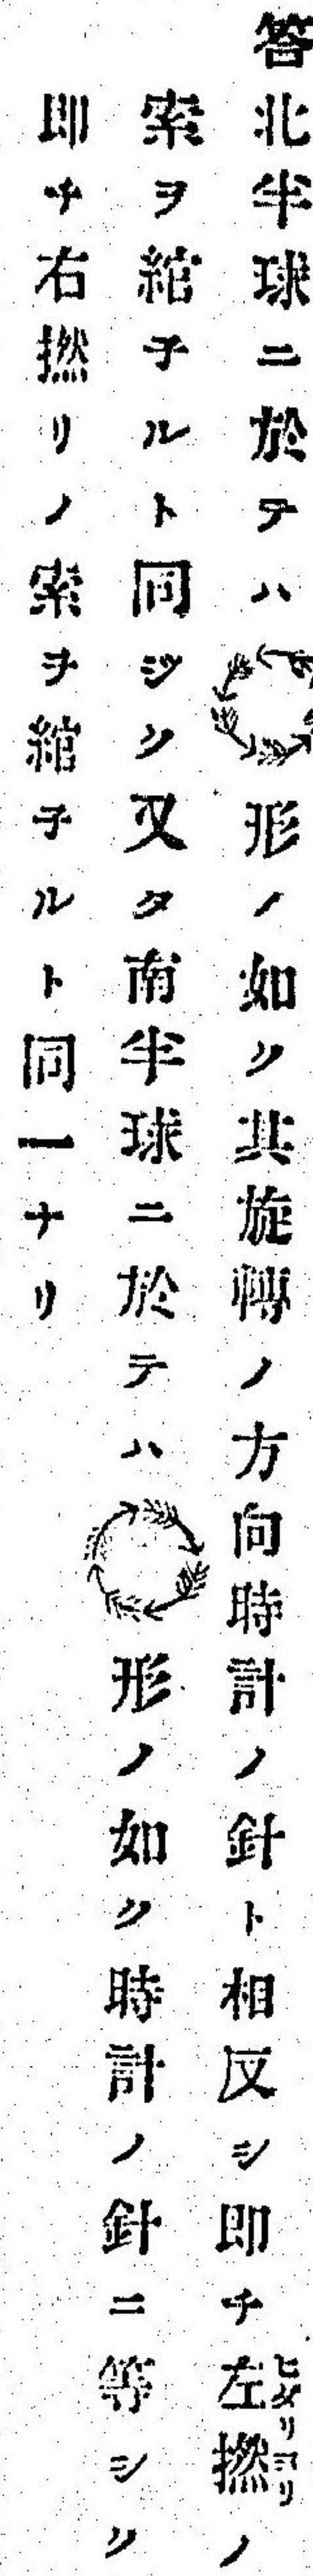 答北半球ニ於テハ形ノ如ク其旋轉ノ方向時計ノ針ト相反シ即チ左撚ノ
ヒダリヨリ
索ヲ綰子ルト同ジク又タ南半球ニ於テハ形ノ如ク時計ノ針ニ等シク
即チ右撚リノ索ヲ綰子ルト同一ナリ